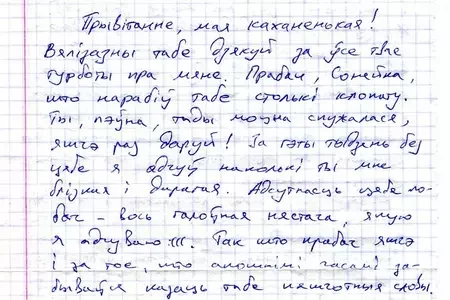 Прывітанне, мая каханенькая!
Вялізазны табе дзякуй за ўсе твае
турботы пра мяне. Прабач, Сонейка,
што нарабіў табе столькі клопату.
Ты, пэўна, тады моцна спужалася,
яшчэ раз даруй! За гэты тыдзень без
цябе я адчуў наколькі ты мне
блізкая і дарагая. Адсутнасць цябе по-
бач – вось галоўная нястача, якую
я адчуваю :(((. Так што прабач яшчэ
і за тое, што апошнімі часамі за-
бываўся казаць табе пяшчотныя словы.